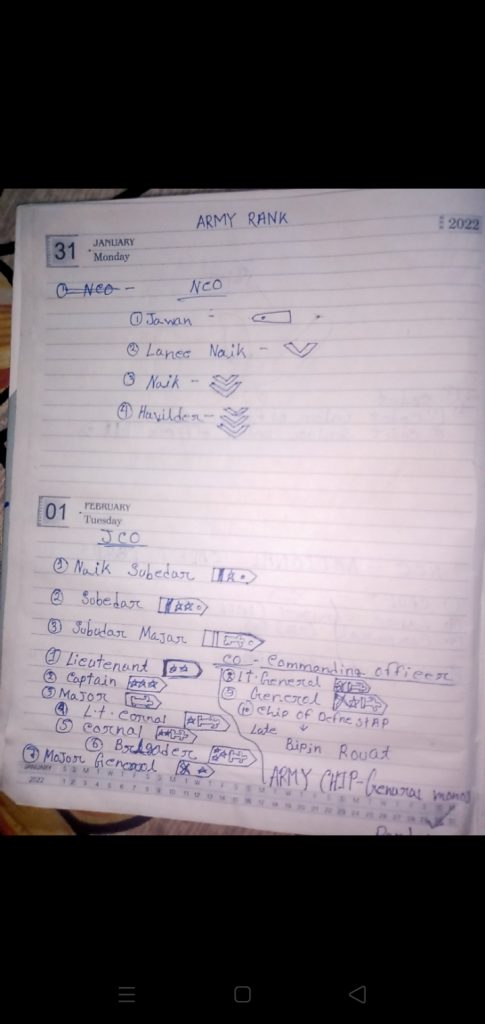 ARMY RANK
2022
31 JANUARY
Monday
① NCO - NCO
① Jawan -
② Lance Naik -
③ Naik -
④ Havilder -
01 FEBRUARY
Tuesday
JCO
① Naik Subedar
② Subedar
③ Subudar Majar
CO - Commanding officeer
① Lieutenant
② Captain
③ Major
④ L.t. cornal
⑤ cornal
⑥ Brigader
⑦ Major General
⑧ Lt. General
⑨ General
⑩ Chip of Defne STAP
Late
Bipin Rouat
ARMY CHIP - General
JANUARY
2022